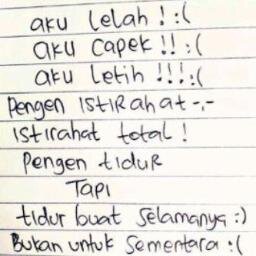 aku Lelah ! :(
aku capek !! :(
aku Letih !!! :(
Pengen istiRahat -.-
istirahat total !
Pengen tiduR
TAPI
tidur buat selamanya :)
Bukan untuk sementara :(